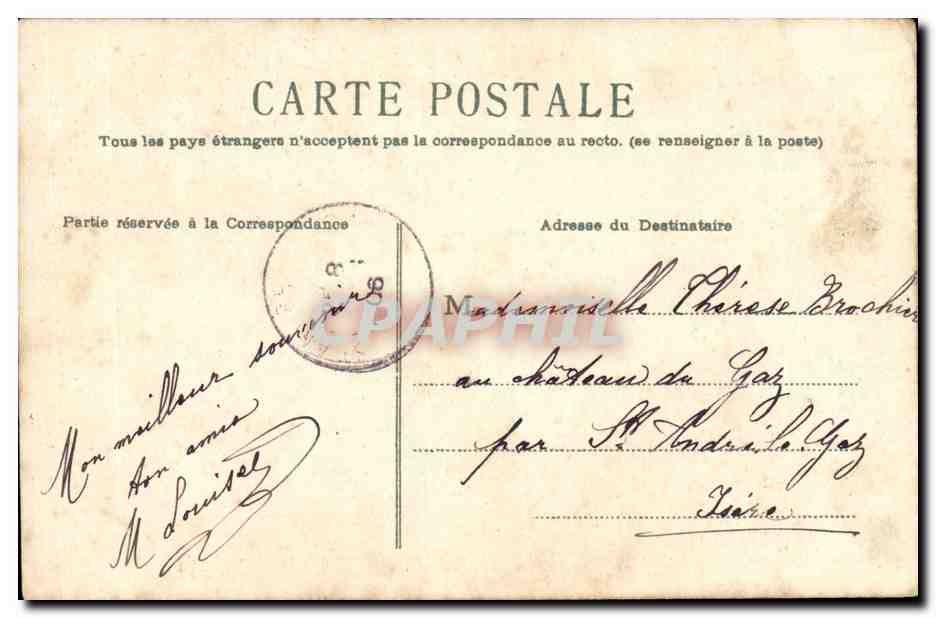 CARTE POSTALE
Tous les pays étrangers n'acceptent pas la correspondance au recto. (se renseigner à la poste)
Partie réservée à la Correspondance
Adresse du Destinataire
8
06
CPAPHIL
Mon meilleur souvenir
ton amie
M Louise
Mademoiselle Thérèse Brochier
au château du Gaz
par St André le Gaz
Isère